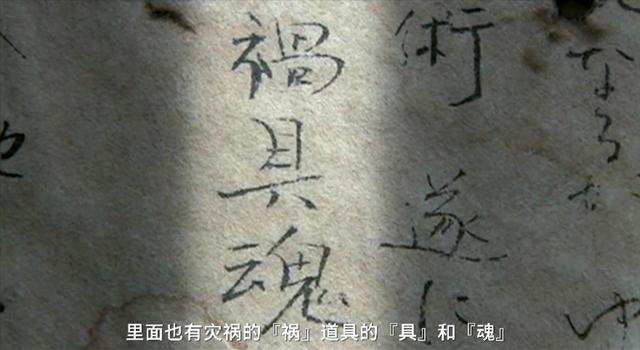 なる
術 遂に
禍具魂
里面也有灾祸的『祸』道具的『具』和『魂』